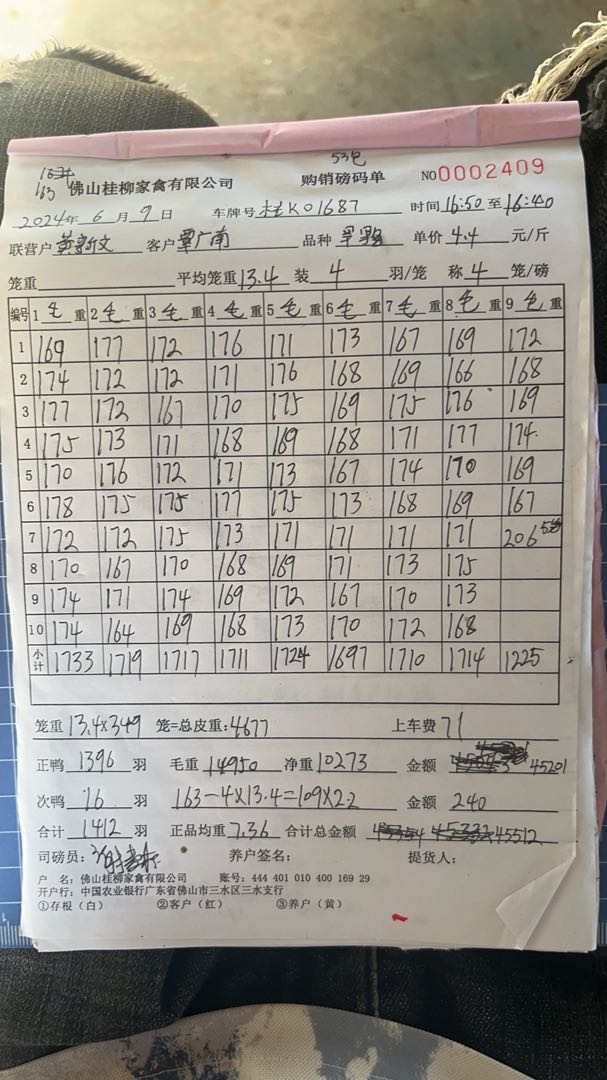 53包
163 佛山桂柳家禽有限公司 购销磅码单 NO 0002409
2024年 6月 9日 车牌号 桂K01687 时间 16:50 至 16:40
联营户 黄新文 客户 覃广南 品种 单价 4.4 元/斤
笼重 平均笼重 13.4 装 4 羽/笼 称 4 笼/磅
编号 1 毛 重 2 毛 重 3 毛 重 4 毛 重 5 毛 重 6 毛 重 7 毛 重 8 毛 重 9 毛 重
1 169 177 172 176 171 173 167 169 172
2 174 172 172 171 176 168 169 166 168
3 177 172 167 170 175 169 175 176 169
4 175 173 171 168 169 168 171 177 174
5 170 176 172 171 173 167 174 170 169
6 178 175 175 177 175 173 168 169 167
7 172 172 175 173 171 171 171 171 206
8 170 167 170 168 169 171 173 175
9 174 171 174 169 172 167 170 173
10 174 164 169 168 173 170 172 168
小计 1733 1719 1717 1711 1724 1697 1710 1714 1225
笼重 13.4×349 笼=总皮重: 4677 上车费 71
正鸭 1396 羽 毛重 14950 净重 10273 金额 45201
次鸭 16 羽 163-4×13.4=109×2.2 金额 240
合计 1412 羽 正品均重 7.36 合计总金额 45512
司磅员: 养户签名: 提货人:
户 名: 佛山桂柳家禽有限公司 账号: 444 401 010 400 169 29
开户行: 中国农业银行广东省佛山市三水区三水支行
①存根（白） ②客户（红） ③养户（黄）